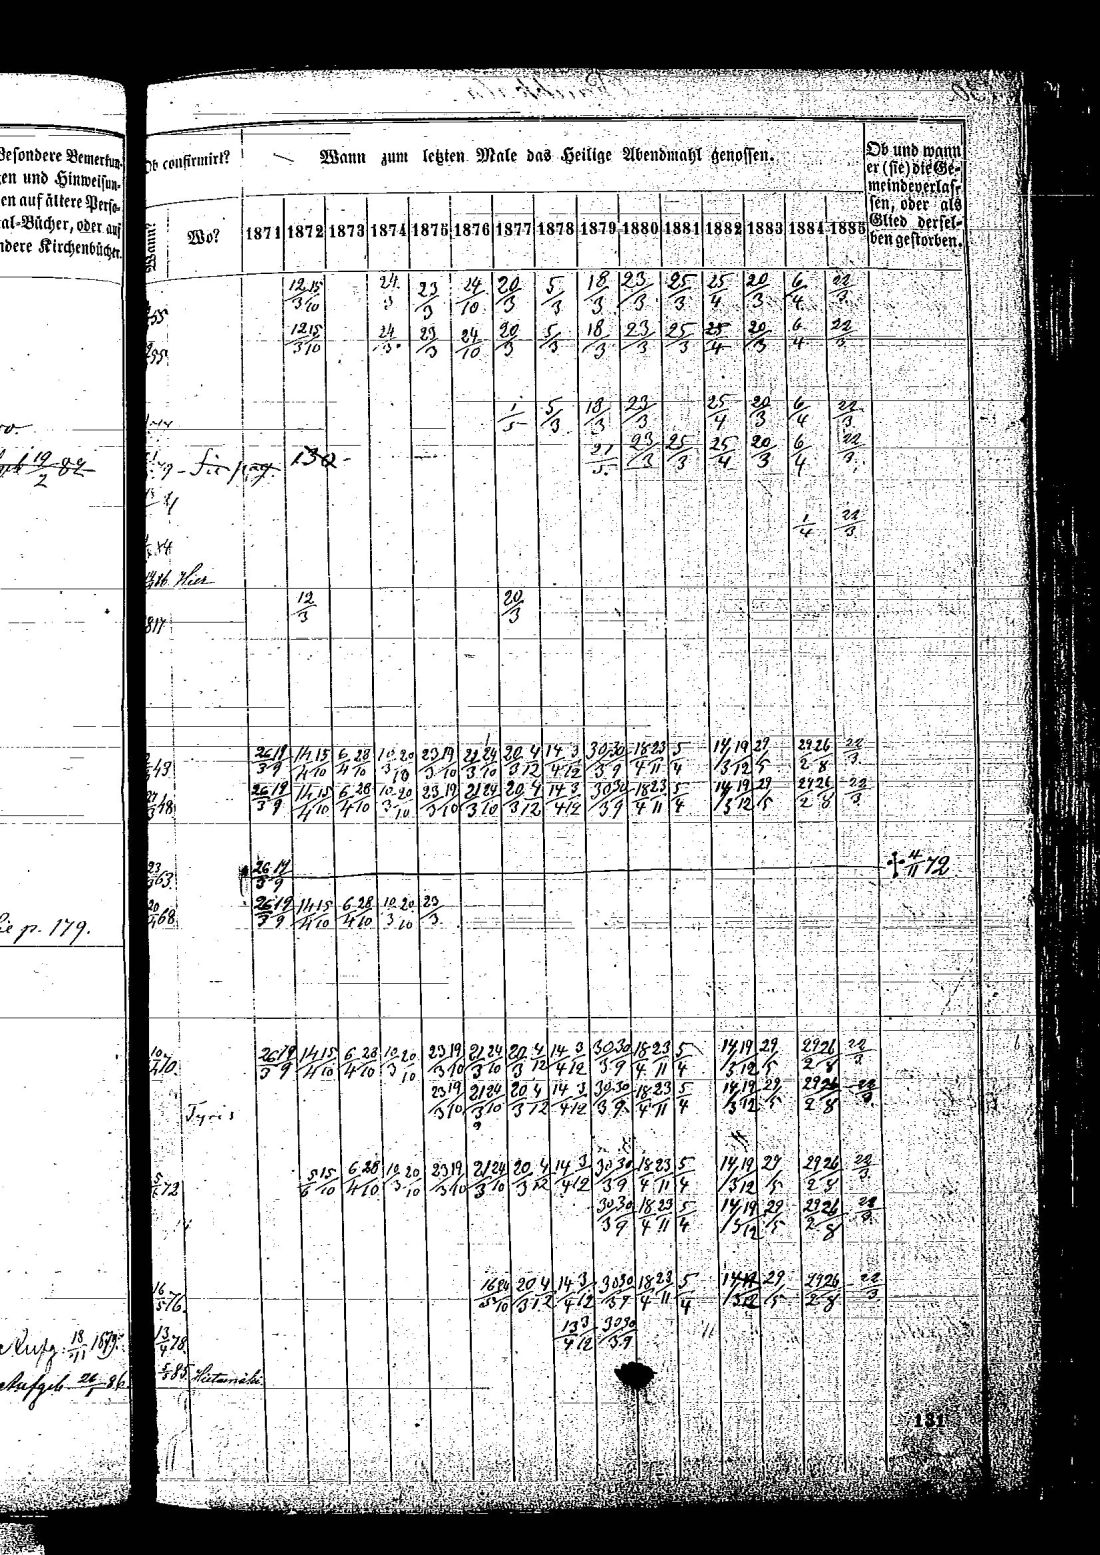 Besondere Bemerkun-
gen und Hinweisun-
gen auf ältere Perso-
nal-Bücher, oder auf
andere Kirchenbücher.
Ob confirmirt?
Wann?
Wo?
Wann zum letzten Male das Heilige Abendmahl genossen.
1871 1872 1873 1874 1875 1876 1877 1878 1879 1880 1881 1882 1883 1884 1885
Ob und wann
er (sie) die Ge-
meinde verlas-
sen, oder als
Glied dersel-
ben gestorben.
12/3 15/10 24/3 23/3 24/10 20/3 5/3 18/3 23/3 25/3 25/4 20/3 6/4 22/3
55
12/3 15/10 24/3 23/3 24/10 20/3 5/3 18/3 23/3 25/3 25/4 20/3 6/4 22/3
55
1/5 5/3 18/3 23/3 25/4 20/3 6/4 22/3
19/2 82 pag. 130 21/5 23/3 25/3 25/4 20/3 6/4 22/3
1/4 22/3
Hier
12/3 20/3
817
49 26/3 19/9 14/4 15/10 6/4 28/10 10/3 20/10 23/3 19/10 21/3 24/10 20/3 4/12 14/4 3/12 30/3 30/9 18/4 23/11 5/4 14/3 19/12 29/5 29/2 26/8 22/3
48 26/3 19/9 14/4 15/10 6/4 28/10 10/3 20/10 23/3 19/10 21/3 24/10 20/3 4/12 14/4 3/12 30/3 30/9 18/4 23/11 5/4 14/3 19/12 29/5 29/2 26/8 22/3
23 63 26/3 19/9 † 4/11 72
20 68 26/3 19/9 14/4 15/10 6/4 28/10 10/3 20/10 23/3
p. 179.
10 70 26/3 19/9 14/4 15/10 6/4 28/10 10/3 20/10 23/3 19/10 21/3 24/10 20/3 4/12 14/4 3/12 30/3 30/9 18/4 23/11 5/4 14/3 19/12 29/5 29/2 26/8 22/3
Tyris 23/3 19/10 21/3 24/10 20/3 4/12 14/4 3/12 30/3 30/9 18/4 23/11 5/4 14/3 19/12 29/5 29/2 26/8 22/3
72 5/6 15/10 6/4 28/10 10/3 20/10 23/3 19/10 21/3 24/10 20/3 4/12 14/4 3/12 30/3 30/9 18/4 23/11 5/4 14/3 19/12 29/5 29/2 26/8 22/3
30/3 30/9 18/4 23/11 5/4 14/3 19/12 29/5 29/2 26/8 22/3
16/5 76. 16/5 24/10 20/3 4/12 14/4 3/12 30/3 30/9 18/4 23/11 5/4 14/3 19/12 29/5 29/2 26/8 22/3
Aufg. 18/11 1879. 13/4 78. 13/4 3/12 30/3 30/9
Aufgeb. 26/1 86. 5/5 85.
131